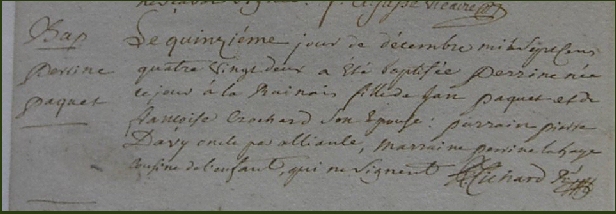 Bap
perrine
paquet
Le quinziéme jour de décembre mil sept cens
quatre vingt deux a été baptisée perrine née
ce jour à la fille de Jan paquet et de
françoise Crochard son Epouse: parrain pierre
Davy oncle par alliance, marraine perrine
cousine de l'enfant, qui ne signent